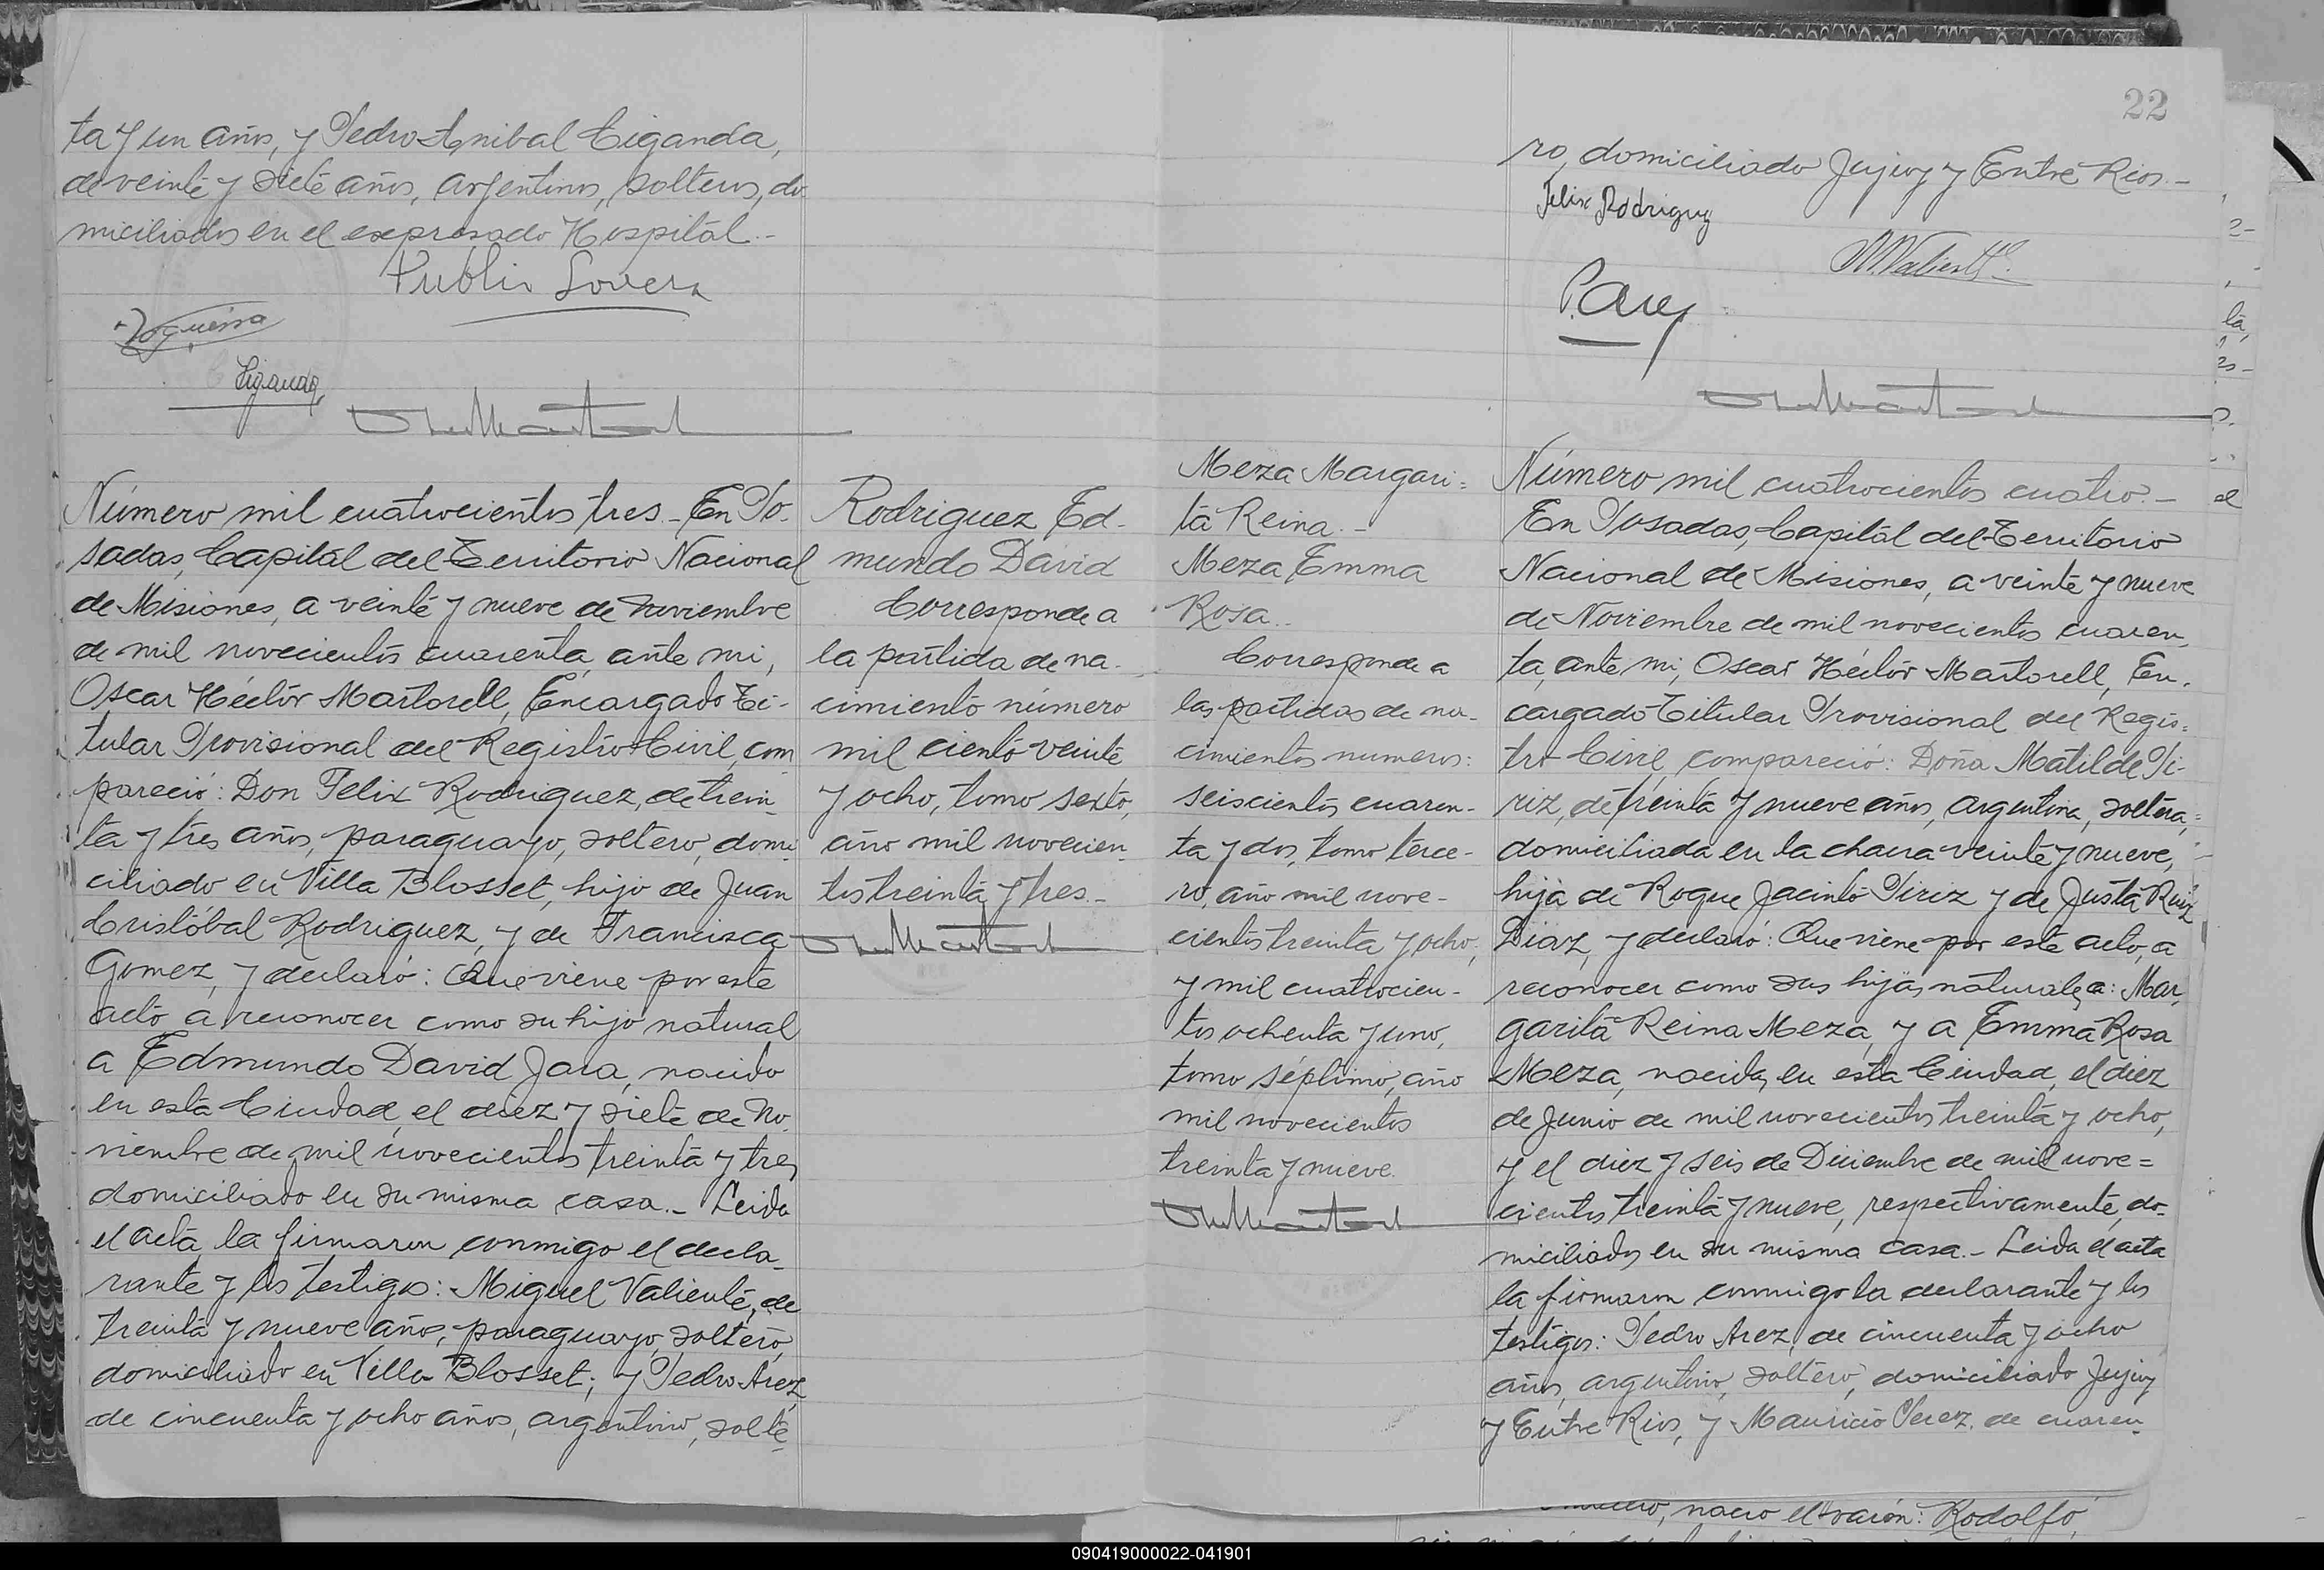 ta y un años, y Pedro Anibal Ciganda,
de veinte y siete años, argentinos, solteros, do-
miciliados en el expresado Hospital.-
Publio Lovera
Noguera
Ciganda
Número mil cuatrocientos tres.- En Po-
sadas, Capital del Territorio Nacional
de Misiones, a veinte y nueve de noviembre
de mil novecientos cuarenta, ante mi,
Oscar Héctor Martorell, Encargado Ti-
tular Provisional del Registro Civil, com
pareció: Don Felix Rodriguez, de trein-
ta y tres años, paraguayo, soltero, domi
ciliado en Villa Blosset, hijo de Juan
Cristóbal Rodriguez, y de Francisca
Gomez, y declaró: Que viene por este
acto, a reconocer como su hijo natural
a Edmundo David Jara, nacido
en esta Ciudad, el diez y siete de No-
viembre de mil novecientos treinta y tres,
domiciliado en su misma casa.- Leida
el acta, la firmaron conmigo el decla-
rante y los testigos: Miguel Valiente, de
treinta y nueve años, paraguayo, soltero,
domiciliado en Villa Blosset; y Pedro Arez,
de cincuenta y ocho años, argentino, solte-
Rodriguez Ed-
mundo David
Corresponde a
la partida de na-
cimiento número
mil ciento veinte
y ocho, tomo sexto,
año mil novecien-
tos treinta y tres.-
22
ro, domiciliado Jujuy y Entre Rios.-
Felix Rodriguez
M. Valiente
P. Arez
Meza Margari=
ta Reina.-
Meza Emma
Rosa.-
Corresponde a
las partidas de na-
cimientos numeros:
seiscientos cuaren-
ta y dos, tomo terce-
ro, año mil nove-
cientos treinta y ocho,
y mil cuatrocien-
tos ochenta y uno,
tomo séptimo, año
mil novecientos
treinta y nueve.
Número mil cuatrocientos cuatro.-
En Posadas, Capital del Territorio
Nacional de Misiones, a veinte y nueve
de Noviembre de mil novecientos cuaren-
ta, ante mi, Oscar Héctor Martorell, En-
cargado Titular Provisional del Regis=
tro Civil, compareció: Doña Matilde Pi-
riz, de treinta y nueve años, argentina, soltera,
domiciliada en la chacra veinte y nueve,
hija de Roque Jacinto Piriz y de Justa Ruiz
Diaz, y declaró: Que viene por este acto, a
reconocer como sus hijas naturales, a: Mar-
garita Reina Meza, y a Emma Rosa
Meza, nacidas en esta Ciudad, el diez
de Junio de mil novecientos treinta y ocho,
y el diez y seis de Diciembre de mil nove=
cientos treinta y nueve, respectivamente, do-
miciliadas en su misma casa.- Leida el acta
la firmaron conmigo la declarante y los
testigos: Pedro Arez, de cincuenta y ocho
años, argentino, soltero, domiciliado Jujuy
y Entre Rios, y Mauricio Perez, de cuaren-
nacio el varón: Rodolfo,
090419000022-041901